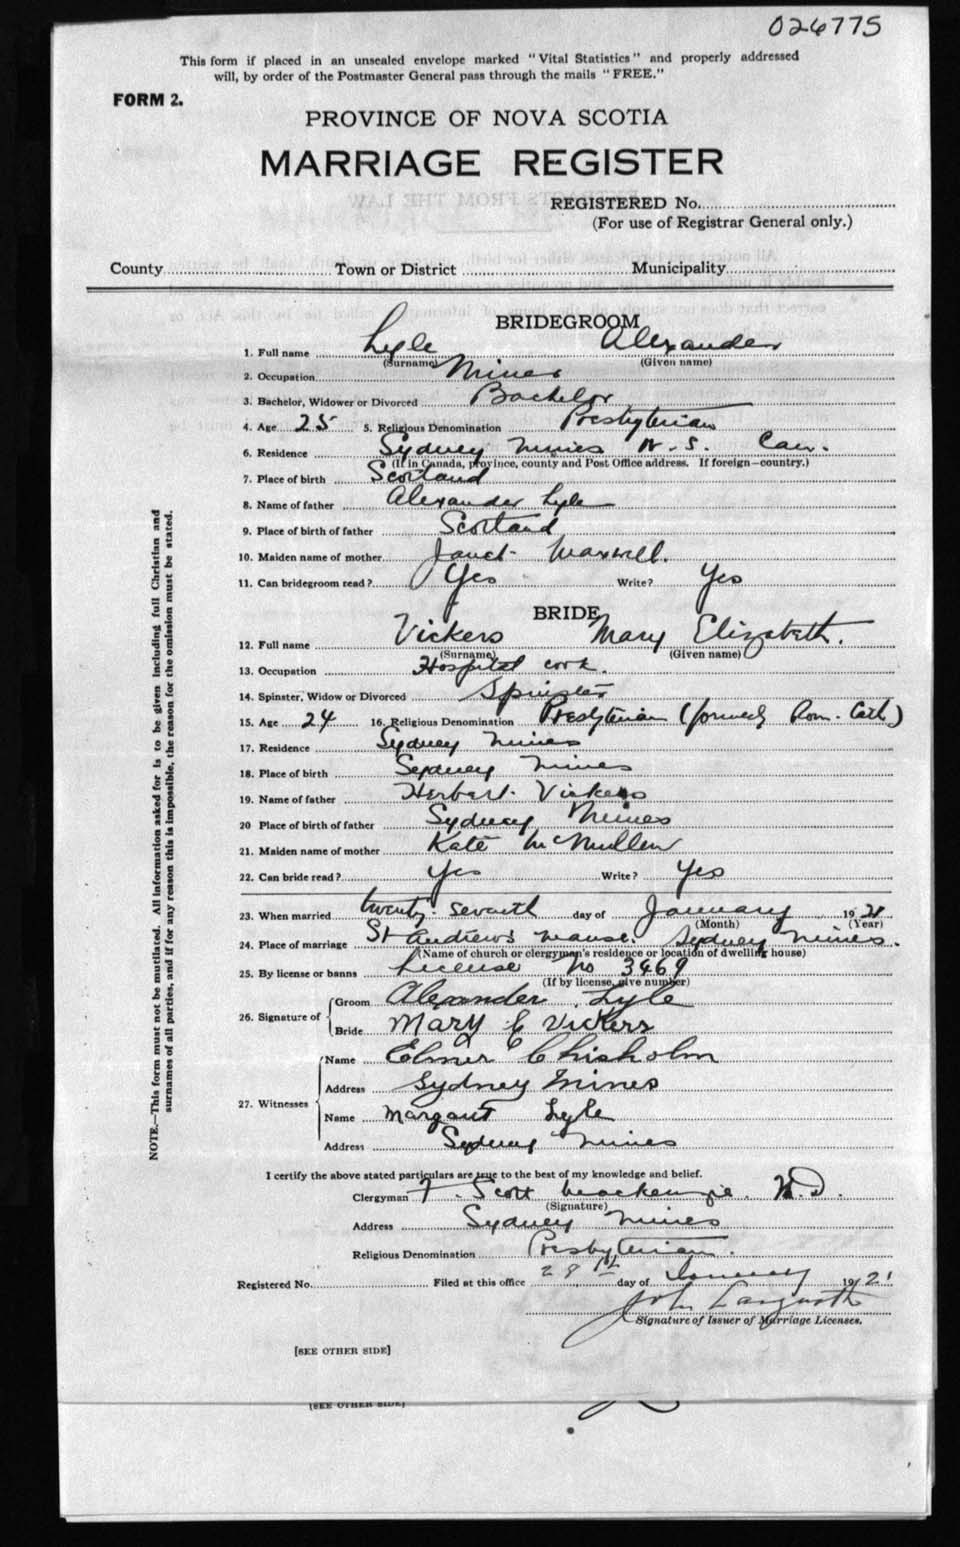 026775
This form if placed in an unsealed envelope marked "Vital Statistics" and properly addressed
will, by order of the Postmaster General pass through the mails "FREE."
FORM 2.
PROVINCE OF NOVA SCOTIA
MARRIAGE REGISTER
REGISTERED No.
(For use of Registrar General only.)
County Town or District Municipality
BRIDEGROOM
1. Full name Lyle Alexander
(Surname) (Given name)
2. Occupation Miner
3. Bachelor, Widower or Divorced Bachelor
4. Age 25 5. Religious Denomination Presbyterian
6. Residence Sydney Mines N.S. Can.
(If in Canada, province, county and Post Office address. If foreign—country.)
7. Place of birth Scotland
8. Name of father Alexander Lyle
9. Place of birth of father Scotland
10. Maiden name of mother Janet Maxwell.
11. Can bridegroom read? Yes Write? Yes
BRIDE
12. Full name Vickers Mary Elizabeth.
(Surname) (Given name)
13. Occupation Hospital cook.
14. Spinster, Widow or Divorced Spinster
15. Age 24 16. Religious Denomination Presbyterian (formerly Rom. Cath)
17. Residence Sydney Mines
18. Place of birth Sydney Mines
19. Name of father Herbert Vickers
20 Place of birth of father Sydney Mines
21. Maiden name of mother Kate McMullen
22. Can bride read? Yes Write? Yes
23. When married twenty-seventh day of January 1921
(Month) (Year)
24. Place of marriage St Andrew's Manse. Sydney Mines.
(Name of church or clergyman's residence or location of dwelling house)
25. By license or banns License No 3469
(If by license, give number)
26. Signature of Groom Alexander Lyle
Bride Mary E Vickers
27. Witnesses Name Elmer Chisholm
Address Sydney Mines
Name Margaret Lyle
Address Sydney Mines
I certify the above stated particulars are true to the best of my knowledge and belief.
Clergyman F. Scott Mackenzie.
(Signature)
Address Sydney Mines
Religious Denomination Presbyterian.
Registered No. Filed at this office 28th day of January 1921
John
Signature of Issuer of Marriage Licenses.
[SEE OTHER SIDE]
[SEE OTHER SIDE]
NOTE.—This form must not be mutilated. All information asked for is to be given including full Christian and
surnames of all parties, and if for any reason this is impossible, the reason for the omission must be stated.